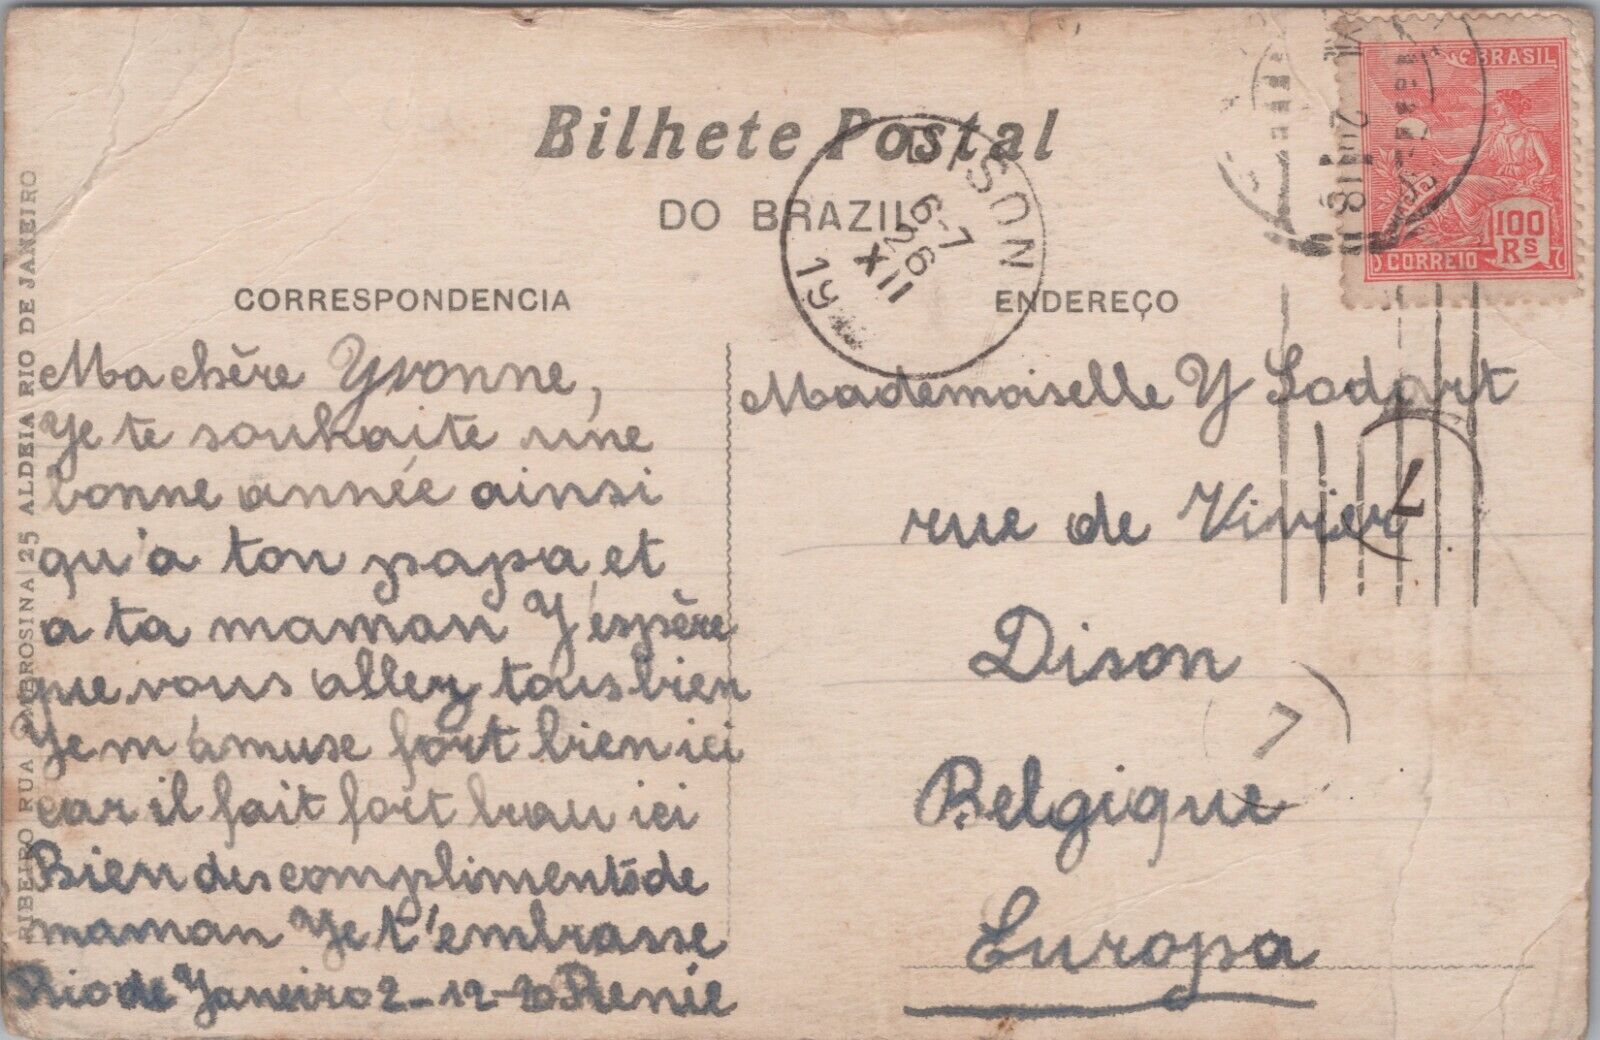 Bilhete Postal
DO BRAZIL
CORRESPONDENCIA
ENDEREÇO
BRASIL
100
RS
CORREIO
DISON
6-7
26
XII
19
RIBEIRO RUA AMBROSINA 25 ALDEIA RIO DE JANEIRO
Ma chère Yvonne,
Je te souhaite une
bonne année ainsi
qu'a ton papa et
a ta maman J'espère
que vous allez tous bien
Je m'amuse fort bien ici
car il fait fort beau ici
Bien des compliments de
maman Je t'embrasse
Rio de Janeiro 2-12-20 Renée
Mademoiselle Y Lodart
rue de Vivier
Dison
Belgique
Europa
7
7